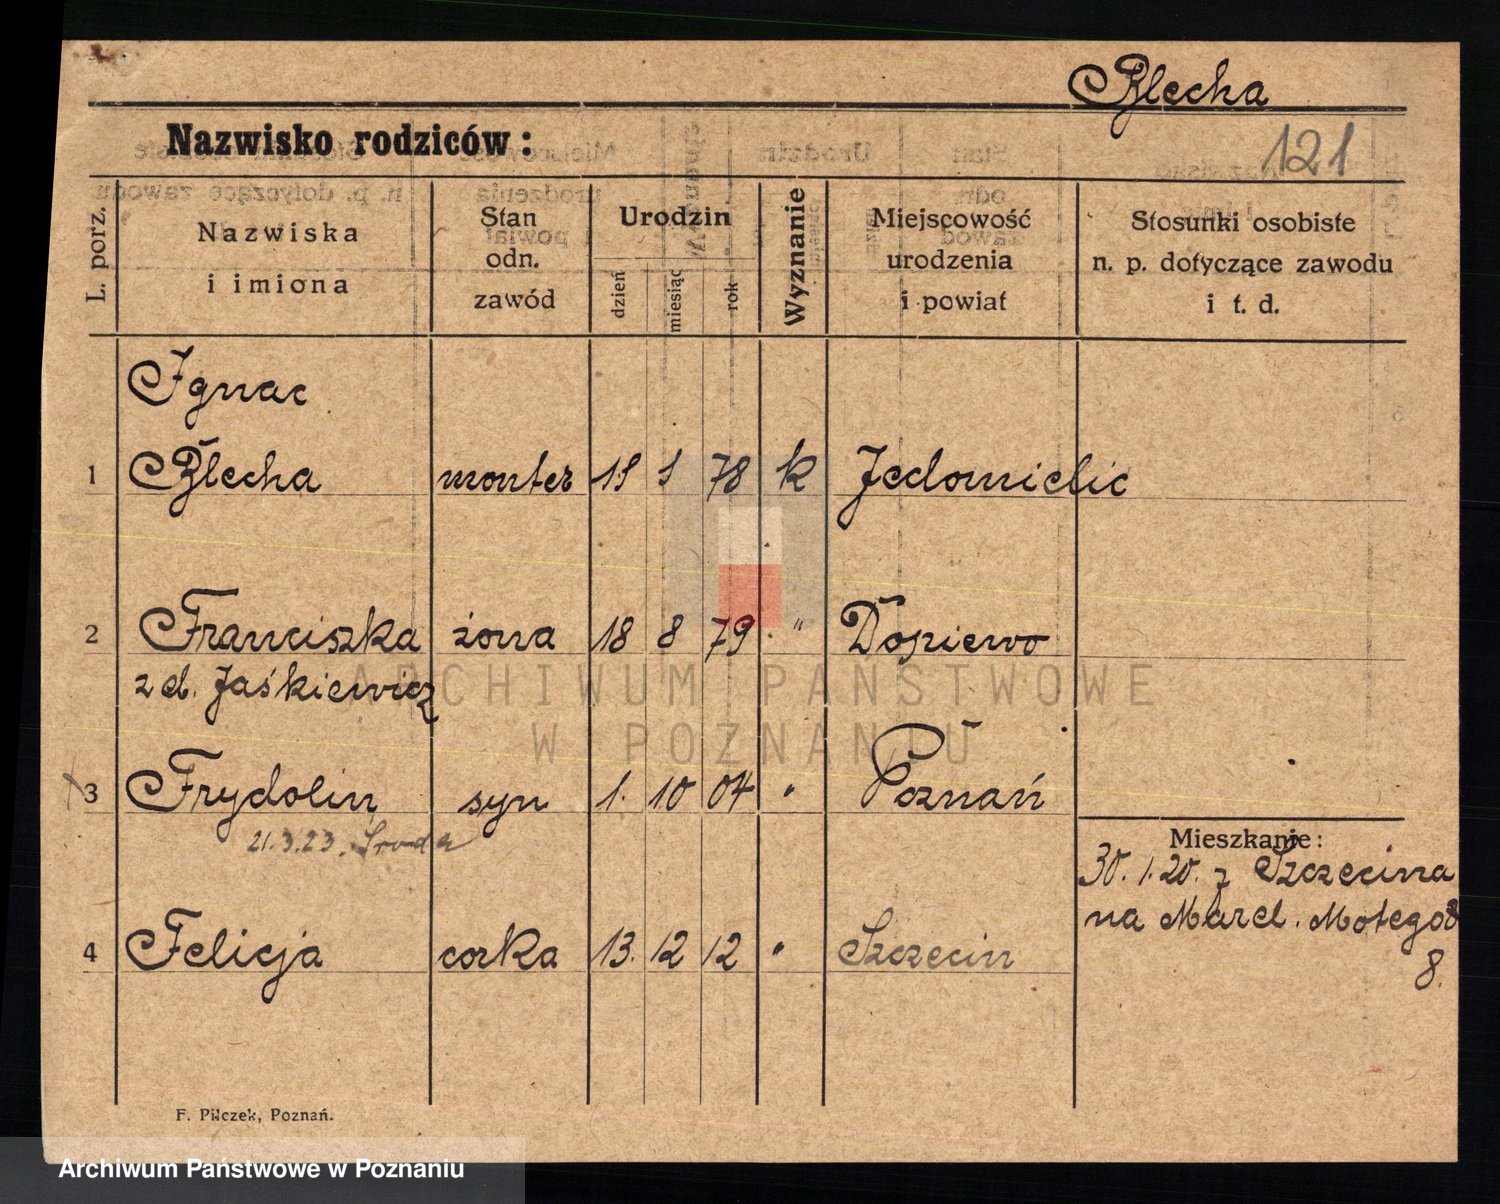 Blecha
Nazwisko rodziców:
121
L. porz.
Nazwiska
i imiona
Stan
odn.
zawód
Urodzin
dzień
miesiąc
rok
Wyznanie
Miejscowość
urodzenia
i powiat
Stosunki osobiste
n. p. dotyczące zawodu
i t. d.
Ignac
1 Blecha monter 78 k
2 Franciszka żona 18 8 79 " Dopiewo
zd. Jaśkiewicz
3 Frydolin syn 1. 10 04 " Poznań
21.3.23. Środa
Mieszkanie:
30.1.20. z Szczecina
na Marcel. Motego
8.
4 Felicja corka 13. 12 12 " Szczecin
F. Pilczek, Poznań.
ARCHIWUM PAŃSTWOWE
W POZNANIU
Archiwum Państwowe w Poznaniu